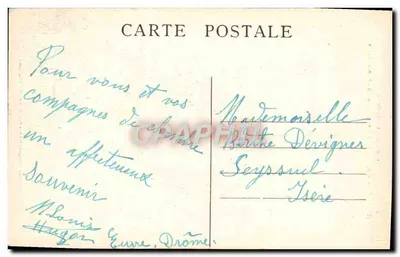 CARTE POSTALE
Pour vous et vos
compagnes de
un affectueux
Souvenir
M. Louis
Eurre, Drôme.
Mademoiselle
Dévignes
Seyssuel
Isère